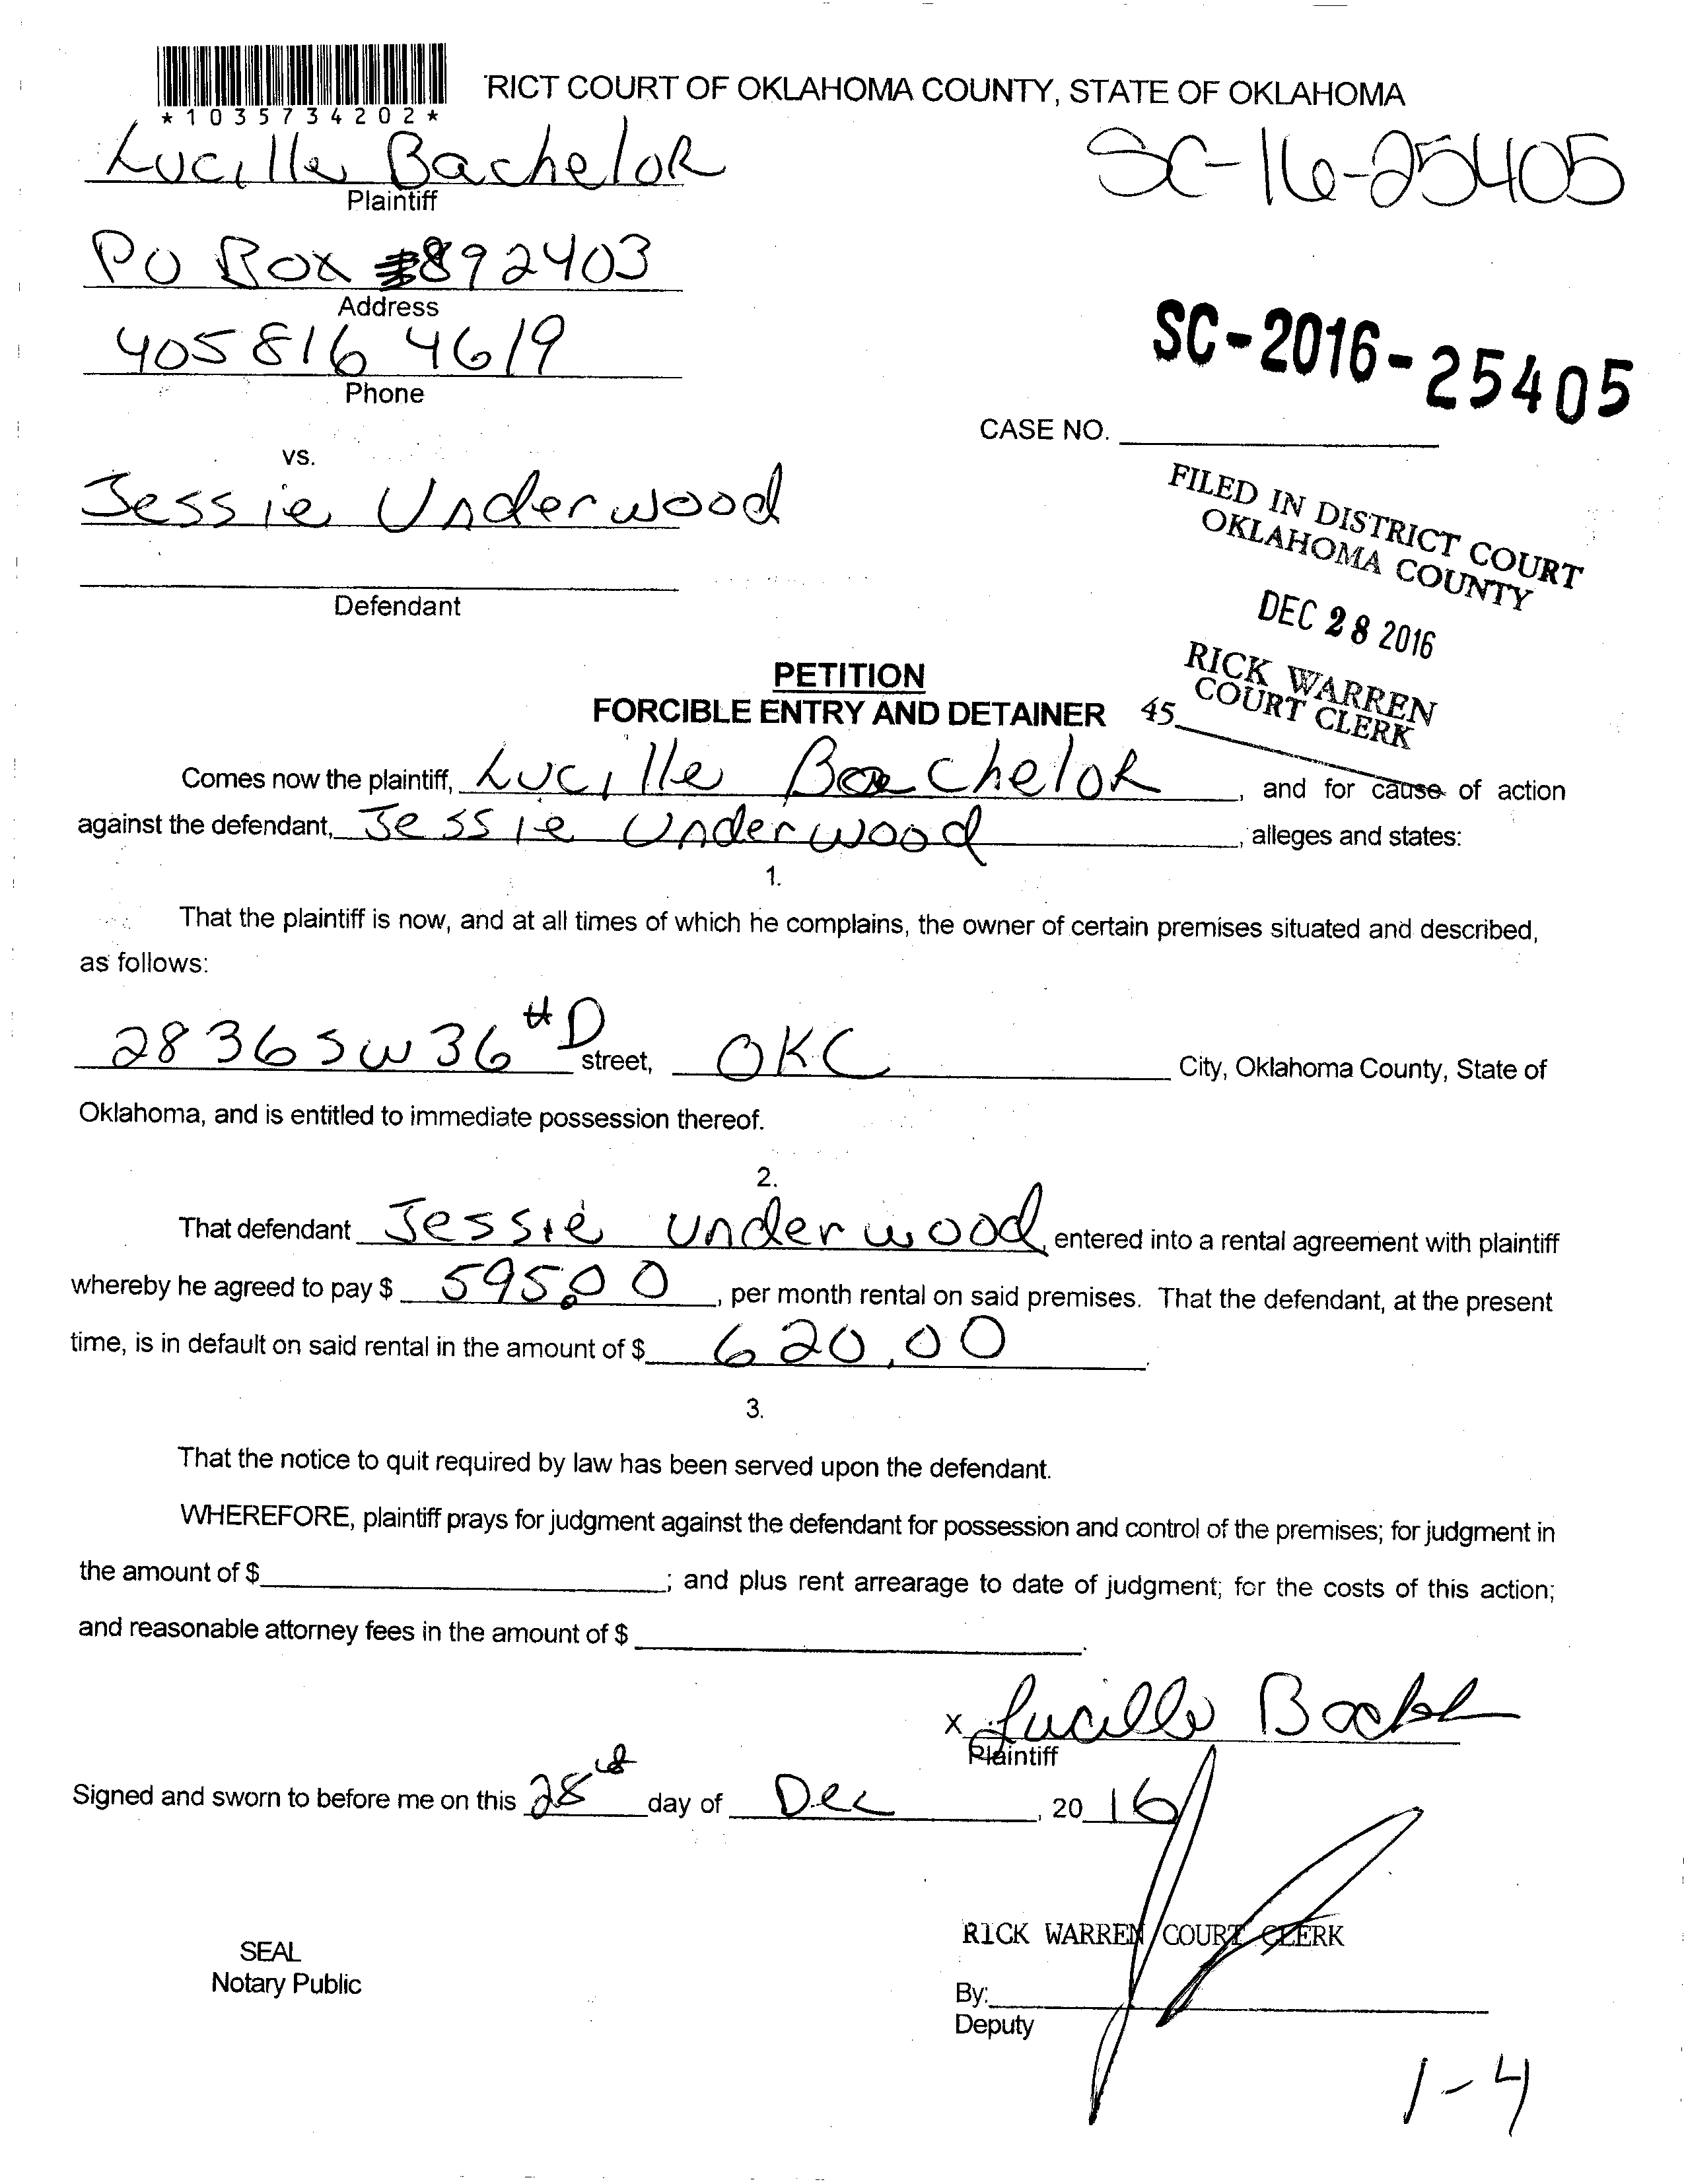 *1035734202*
RICT COURT OF OKLAHOMA COUNTY, STATE OF OKLAHOMA
Lucille Bachelor
Plaintiff
SC-16-25405
PO Box #892403
Address
405 816 4619
Phone
SC-2016-25405
CASE NO.
vs.
Jessie Underwood
Defendant
FILED IN DISTRICT COURT
OKLAHOMA COUNTY
DEC 28 2016
RICK WARREN
COURT CLERK
45
PETITION
FORCIBLE ENTRY AND DETAINER
Comes now the plaintiff, Lucille Bachelor, and for cause of action
against the defendant, Jessie Underwood, alleges and states:
1.
That the plaintiff is now, and at all times of which he complains, the owner of certain premises situated and described,
as follows:
2836 SW 36 #D street, OKC City, Oklahoma County, State of
Oklahoma, and is entitled to immediate possession thereof.
2.
That defendant Jessie Underwood, entered into a rental agreement with plaintiff
whereby he agreed to pay $ 595.00, per month rental on said premises. That the defendant, at the present
time, is in default on said rental in the amount of $ 620.00.
3.
That the notice to quit required by law has been served upon the defendant.
WHEREFORE, plaintiff prays for judgment against the defendant for possession and control of the premises; for judgment in
the amount of $ ; and plus rent arrearage to date of judgment; for the costs of this action;
and reasonable attorney fees in the amount of $ .
x Lucille Bachelor
Plaintiff
Signed and sworn to before me on this 28 day of Dec, 20 16
RICK WARREN COURT CLERK
SEAL
Notary Public
By:
Deputy
1-4